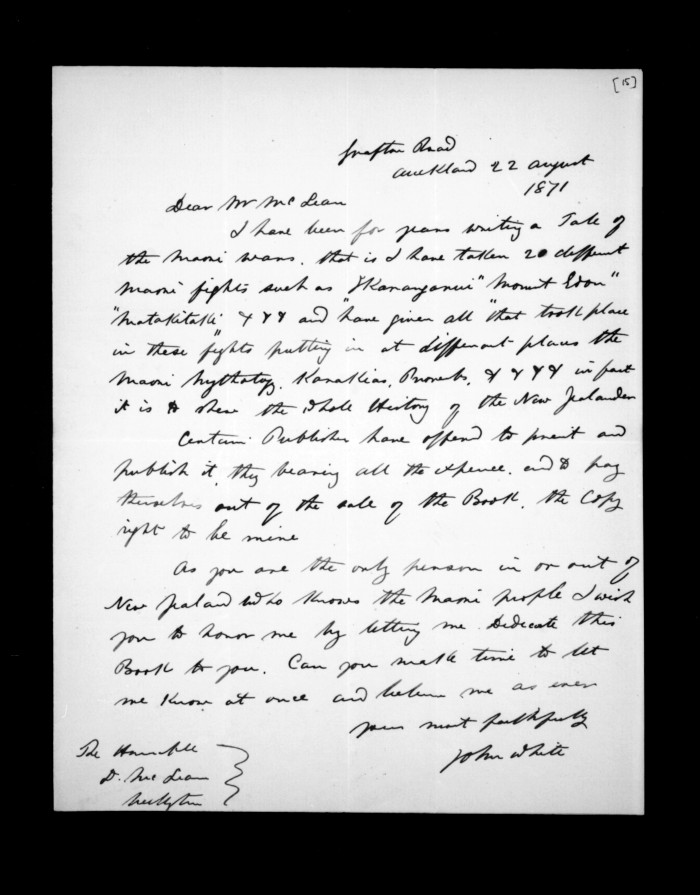 [15]
Grafton Road
Auckland 22 August
1871
Dear Mr McLean
I have been for years writing a Tale of
the Maori wars. that is I have taken 20 different
Maori fights such as "Mount Eden"
"Matakitaki" & & & and have given all that took place
in these fights putting in at different places the
Maori Mythology. Karakias, Proverbs, & & & & in fact
it is to shew the whole History of the New Zealander
Certain Publisher have offered to print and
publish it, they bearing all the expence. and to pay
themselves out of the sale of the Book. the Copy
right to be mine
As you are the only person in or out of
New Zealand who knows the Maori people I wish
you to honor me by letting me Dedicate this
Book to you. Can you make time to let
me know at once and believe me as ever
yours most faithfully
John White
The Honorable
D. McLean
Wellington